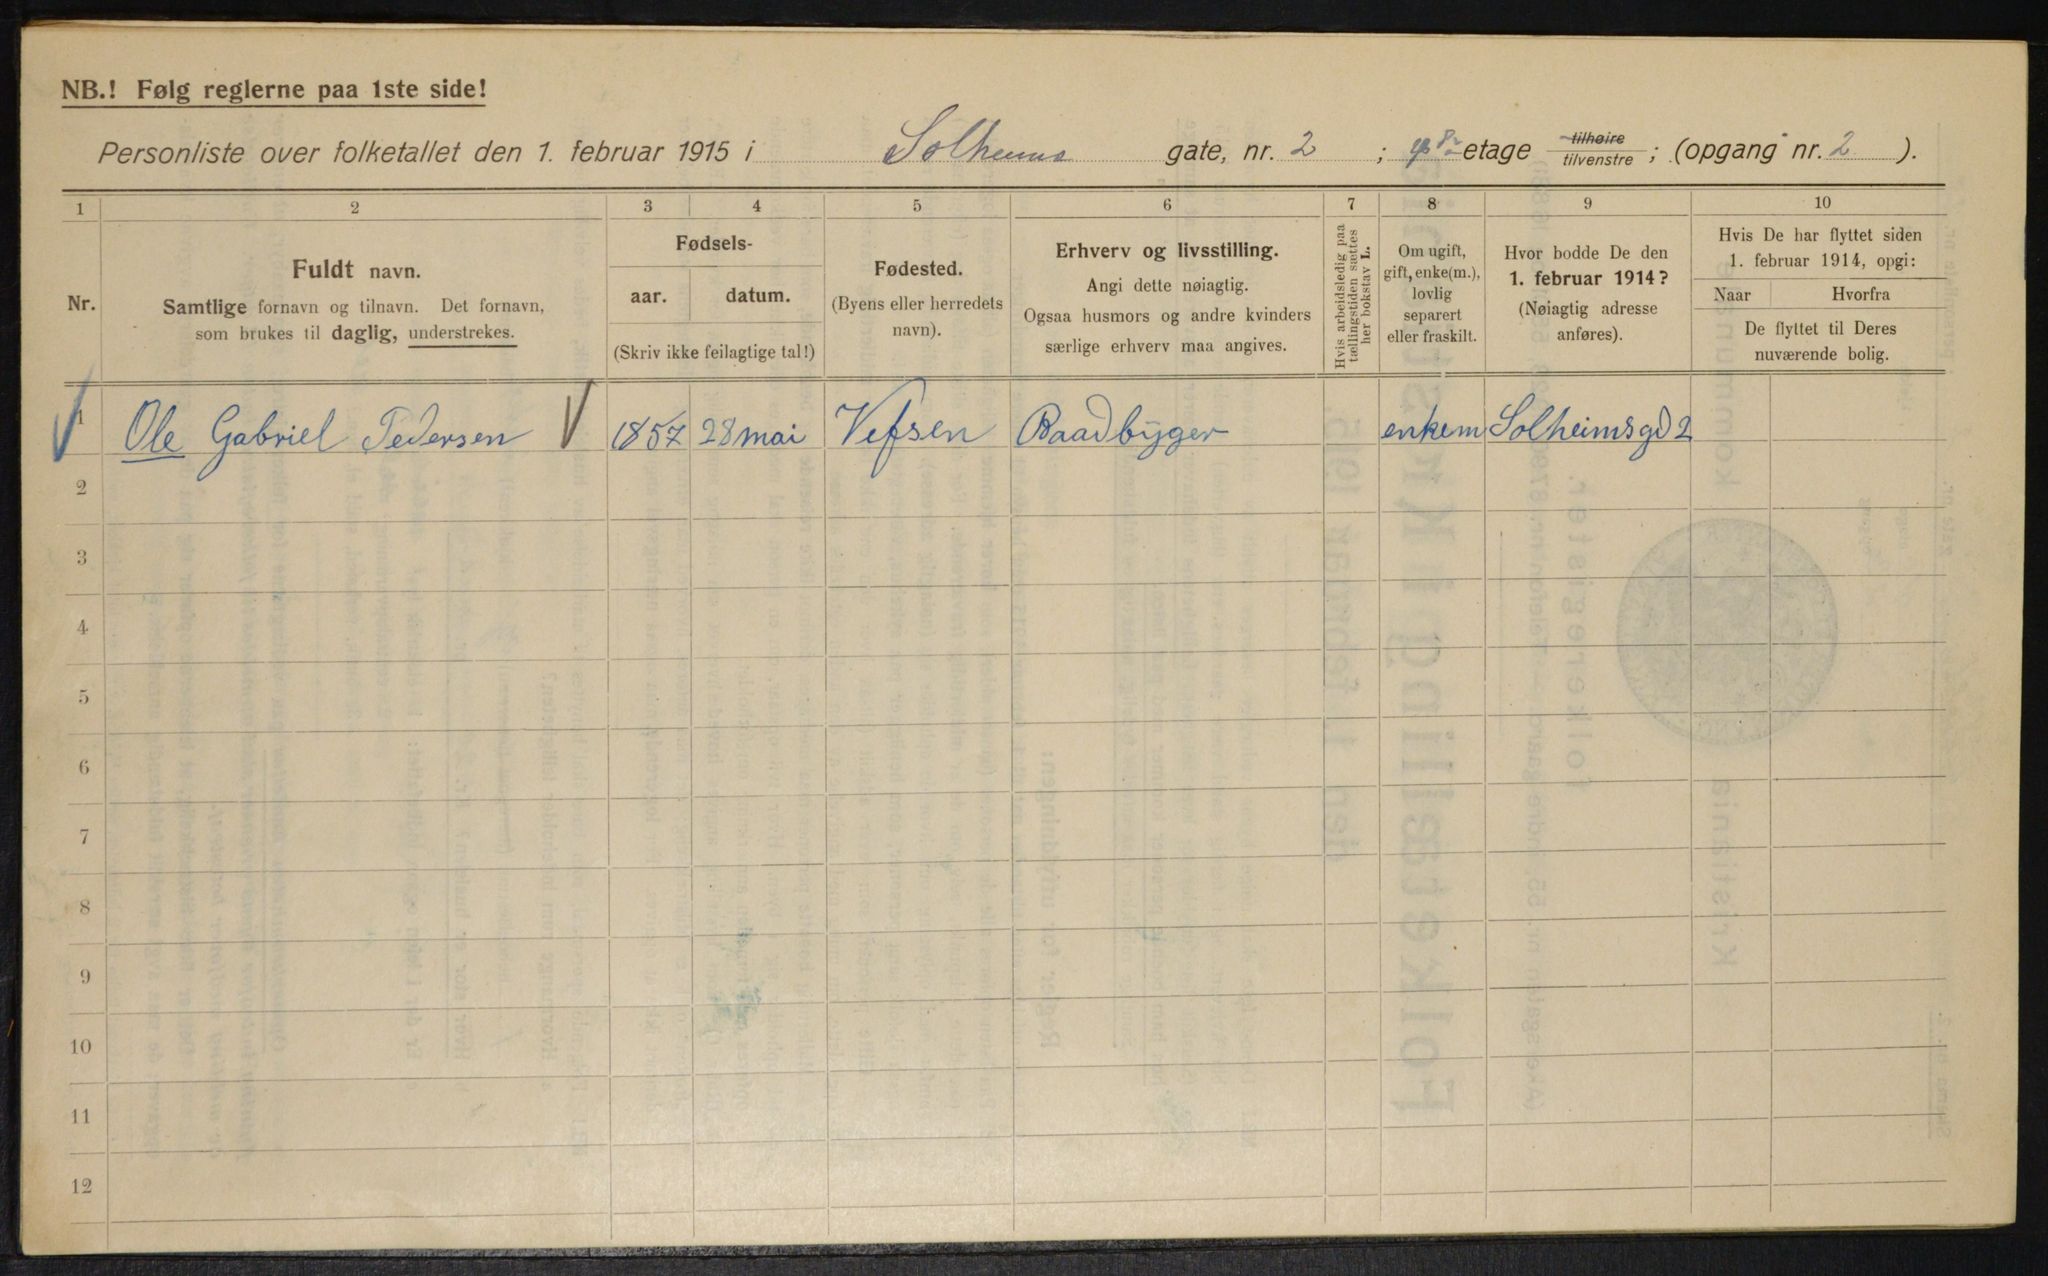 NB.! Følg reglerne paa 1ste side!
Personliste over folketallet den 1. februar 1915 i Solheims gate, nr. 2 ; etage tilhøire tilvenstre ; (opgang nr. 2 ).
1 2 3 4 5 6 7 8 9 10
Nr.
Fuldt navn.
Samtlige fornavn og tilnavn. Det fornavn,
som brukes til daglig, understrekes.
Fødsels-
aar. datum.
(Skriv ikke feilagtige tal!)
Fødested.
(Byens eller herredets
navn).
Erhverv og livsstilling.
Angi dette nøiagtig.
Ogsaa husmors og andre kvinders
særlige erhverv maa angives.
Hvis arbeidsledig paa
tællingstiden sættes
her bokstav L.
Om ugift,
gift, enke(m.),
lovlig
separert
eller fraskilt.
Hvor bodde De den
1. februar 1914?
(Nøiagtig adresse
anføres).
Hvis De har flyttet siden
1. februar 1914, opgi:
Naar Hvorfra
De flyttet til Deres
nuværende bolig.
1 Ole Gabriel Pedersen 1857 28 mai Vefsen Baadbygger enkem Solheimsgd 2
2
3
4
5
6
7
8
9
10
11
12